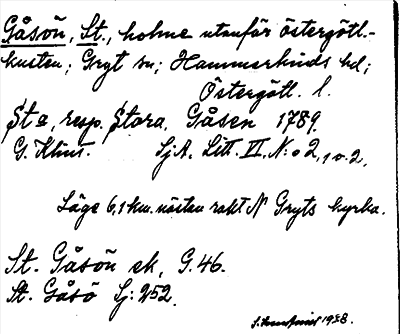 Gåsön, St., holme utanför östergötl.-
kusten; Gryt sn; Hammarkinds hd;
Östergötl. l.
St a, resp. Stora, Gåsen 1789.
G. Klint. Sj.A. Litt. VI. N:o 2, 1 o. 2.
Läge 6,1 km. nästan rakt N Gryts kyrka.
St. Gåsön ek, G. 46.
St. Gåsö Sj: 252.
1938.